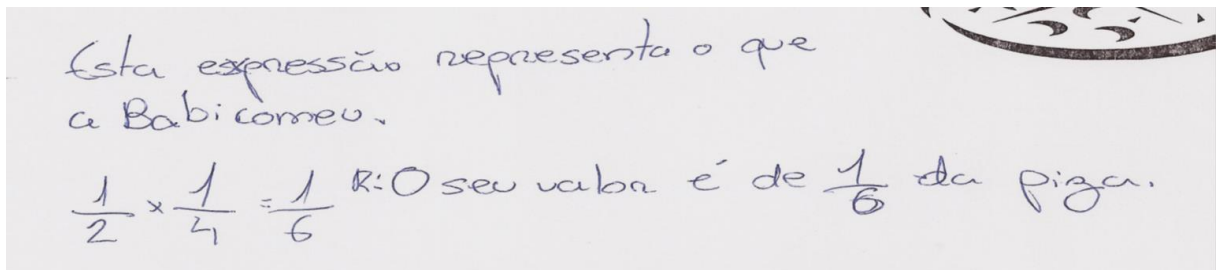 Esta expressão representa o que
a Babi comeu.
1/2 × 1/4 = 1/6 R: O seu valor é de 1/6 da piza.